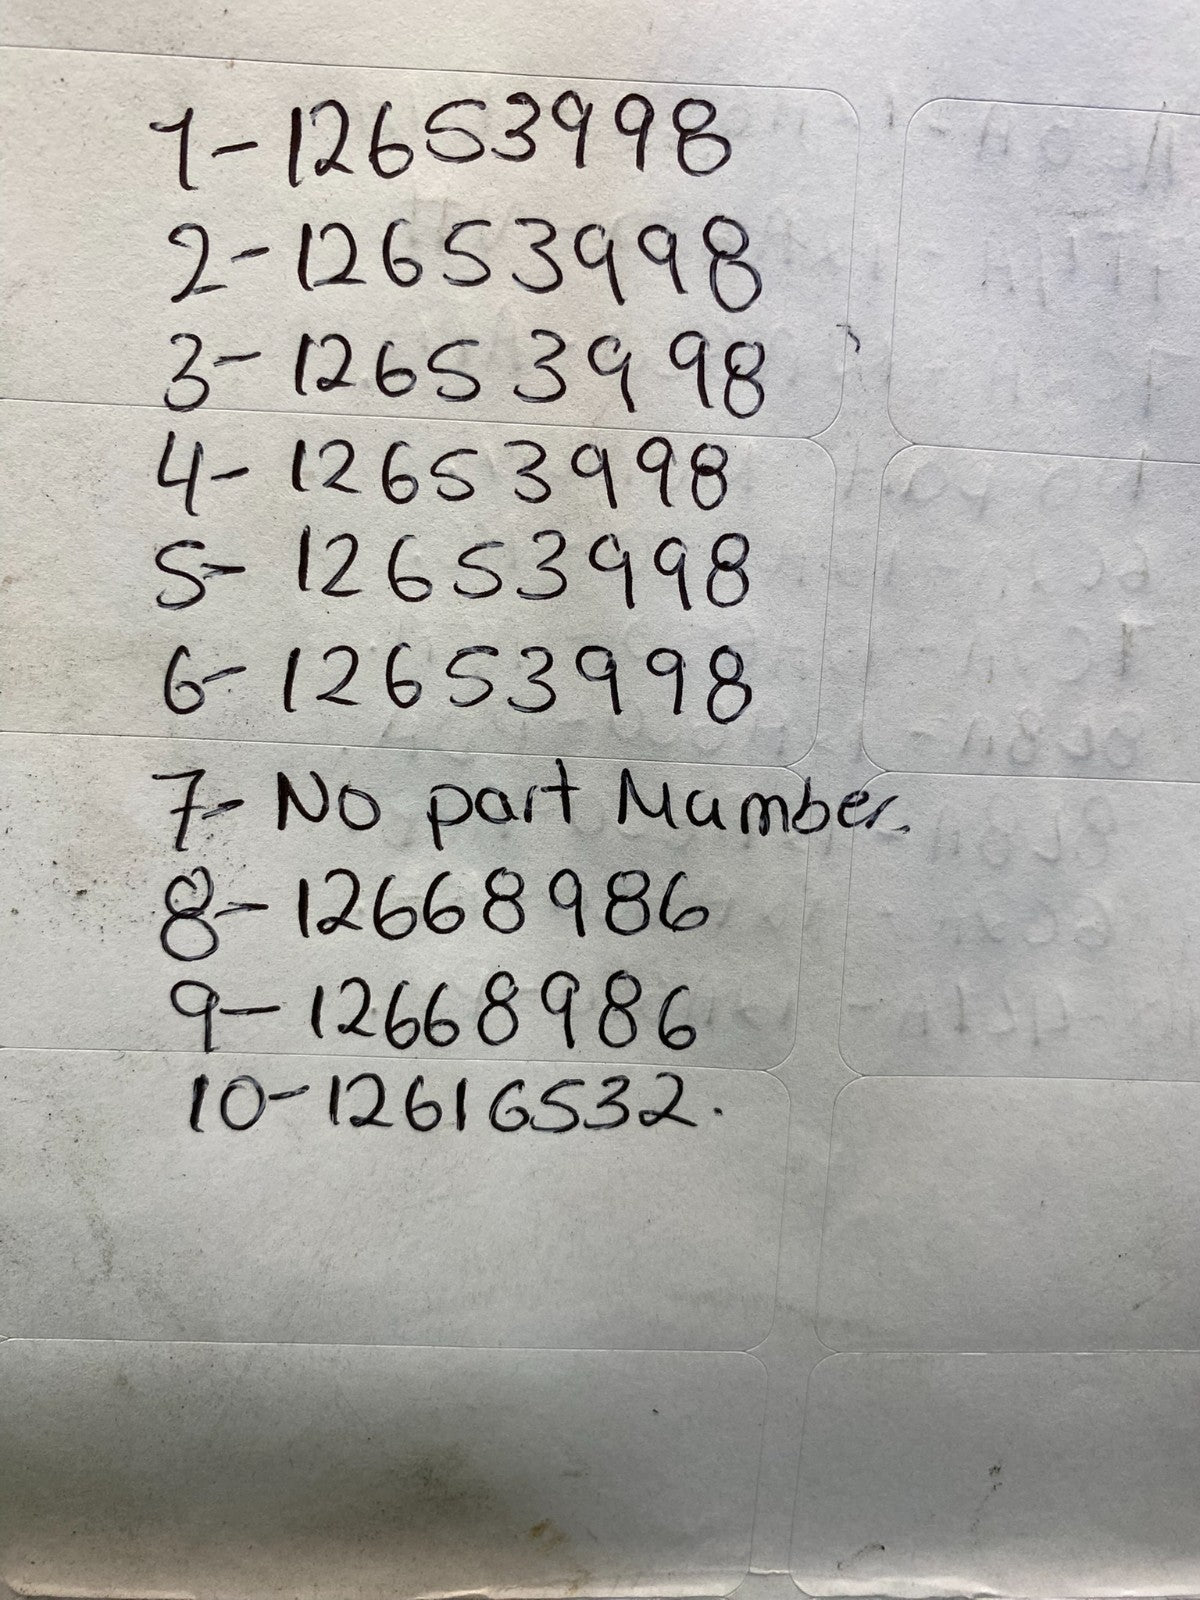 1-12653998
2-12653998
3-12653998
4-12653998
5-12653998
6-12653998
7-No part Number.
8-12668986
9-12668986
10-12616532.